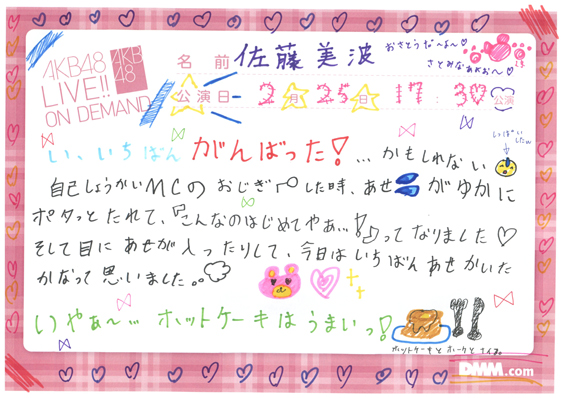 AKB48
LIVE!!
ON DEMAND
AKB
48
名前 佐藤美波
おさとうなみ〜♡
さとみなみだぉ〜♡
公演日 2月25日 17:30 公演
い、いちばん がんばった! …かもしれない
しっぱいしたw
自己しょうかいMCの おじぎ した時、あせ がゆかに
ポタッと たれて、『こんなのはじめてやぁ…!』って なりました♡
そして目に あせが入ったりして、今日は いちばん あせ かいた
かなって 思いました。
いやぁ〜… ホットケーキは うまいっ!
ホットケーキと フォークと ナイフ。
DMM.com